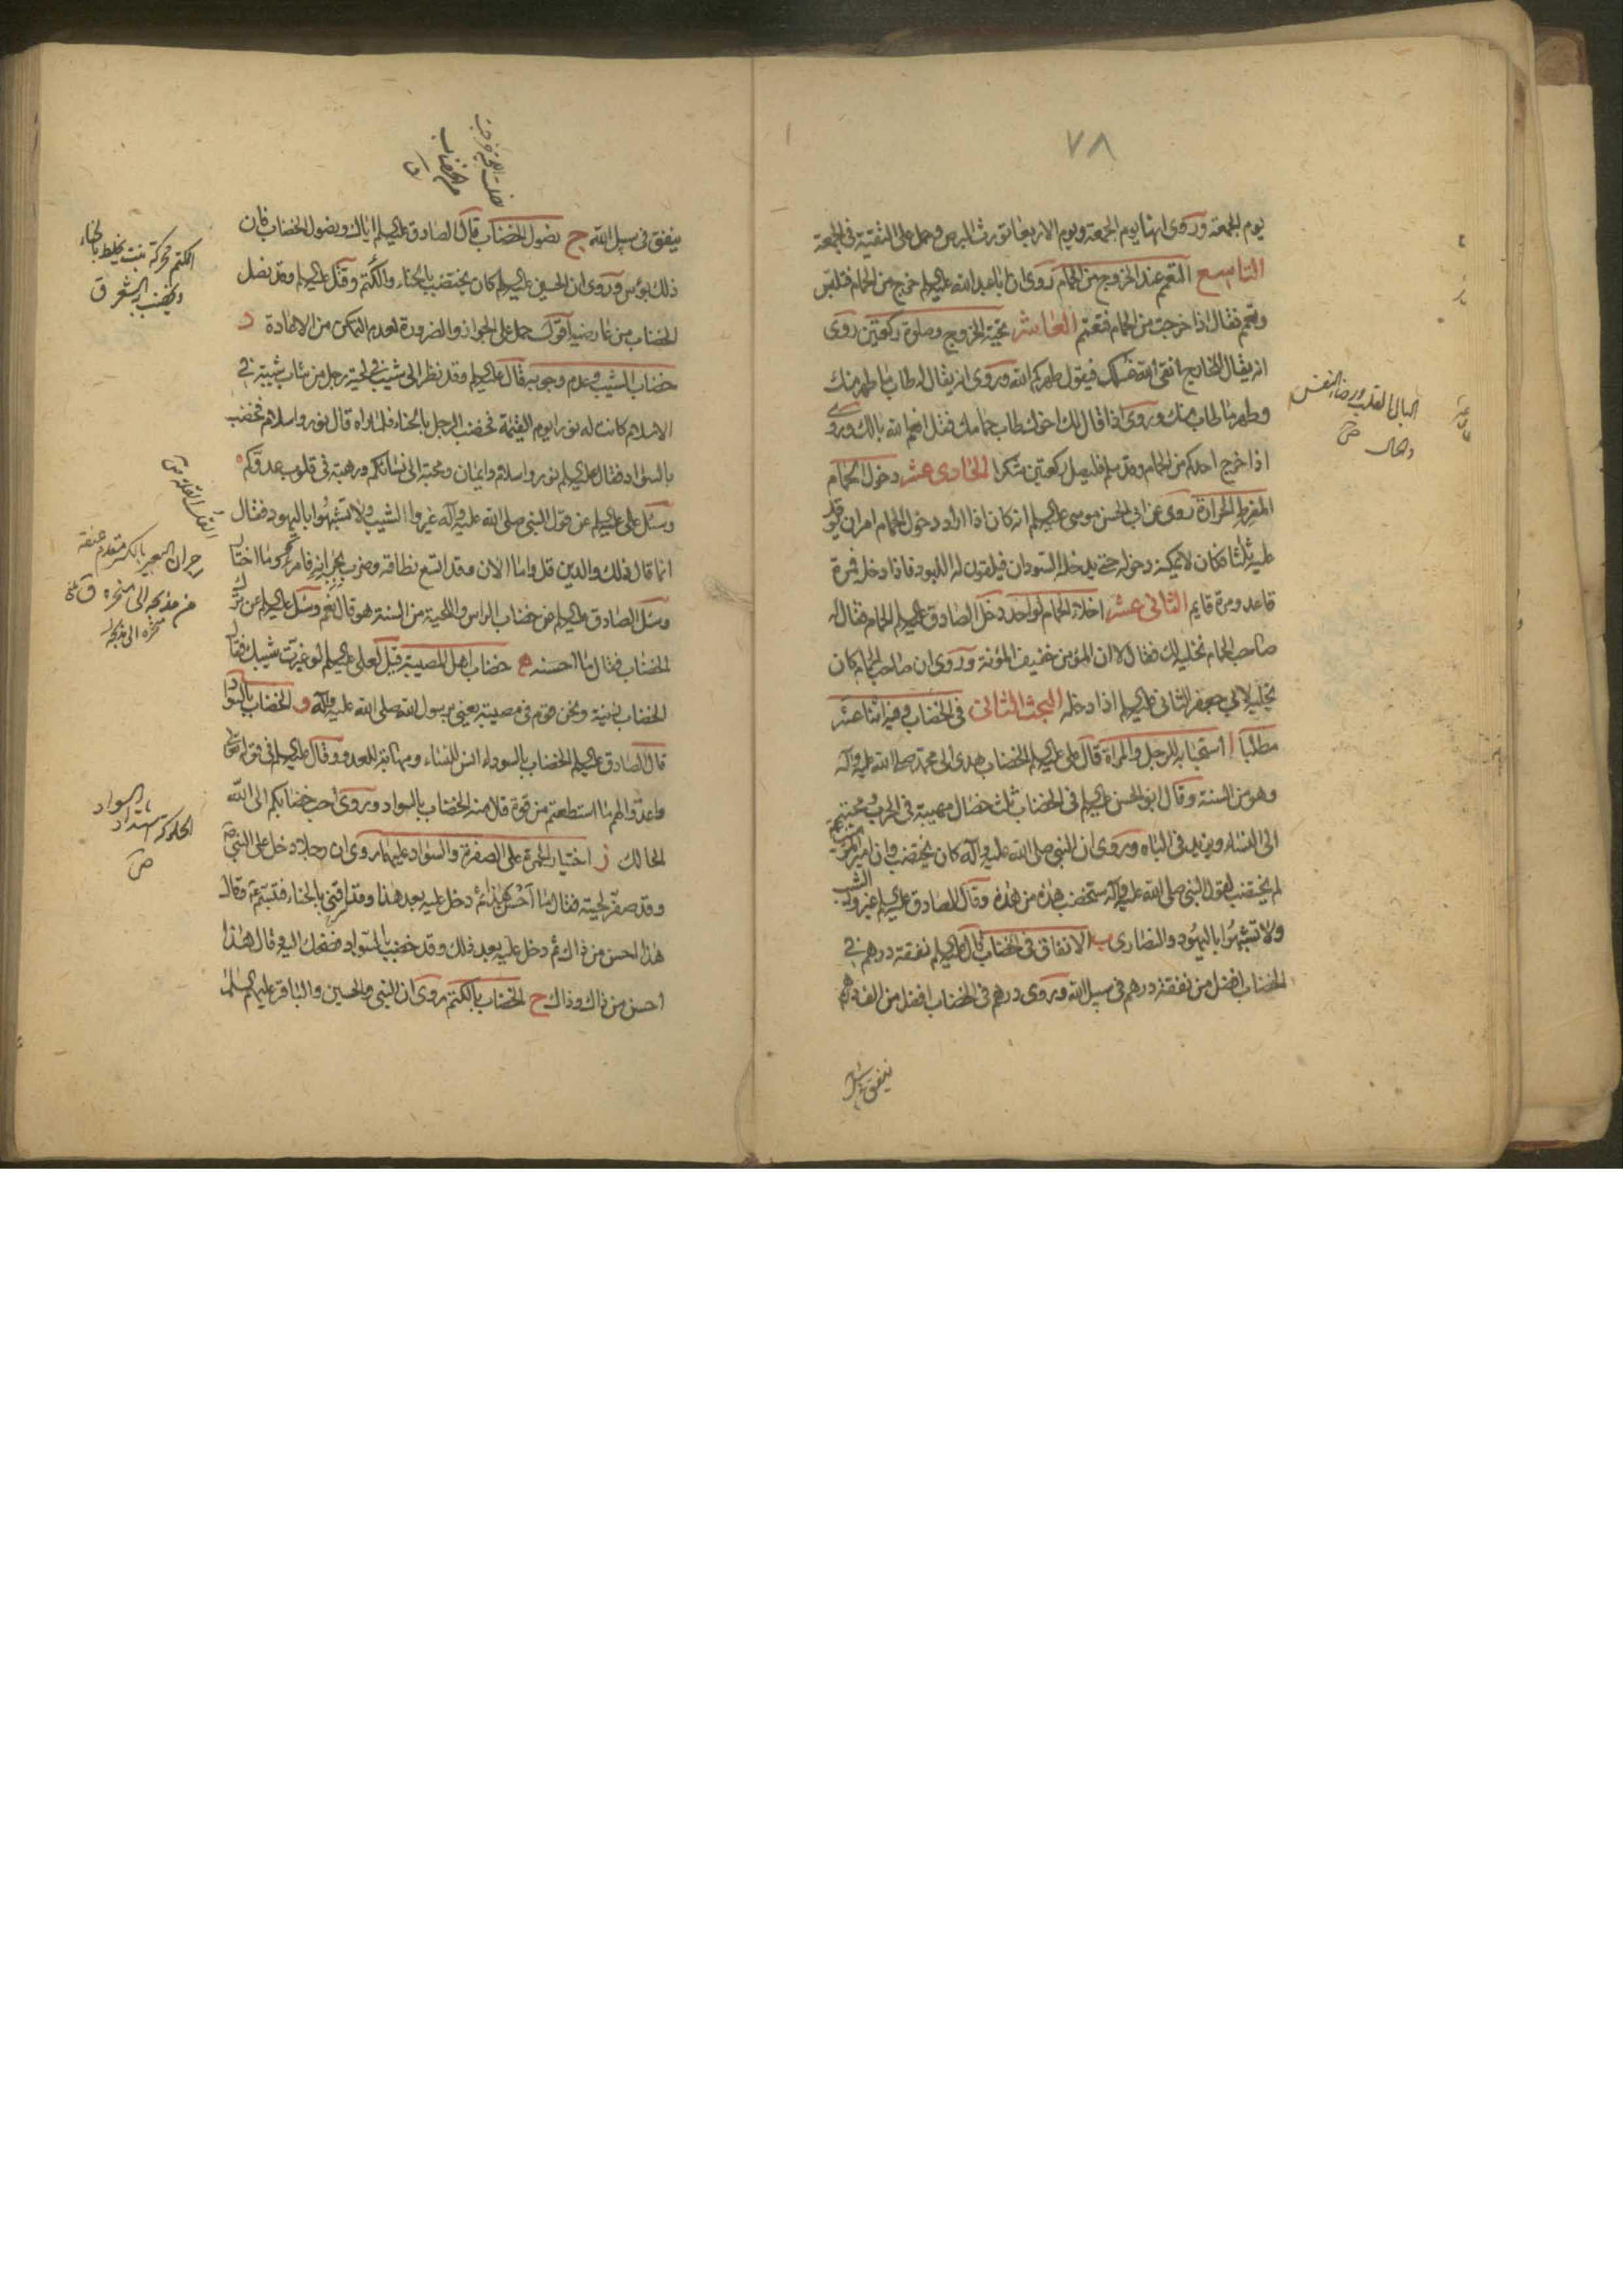 ٧٨
يوم الجمعة وروى انها يوم الجمعة ويوم الاربعا تورث البرص وحمل على التقية فى الجمعة
التاسع التعمم عند الخروج من الحمام روى ان ابا عبد الله عليه السلم خرج من الحمام فتلبس
وتعمم فقال اذا خرجت من الحمام فتعمم العاشر تحية الخروج وصلوة ركعتين روى
انه يقال للخارج انقى الله غسلك فيقول طهركم الله وروى انه يقال له طاب ما طهر منك
وطهر ما طاب منك وروى اذا قال لك اخوك طاب حمامك فقل انعم الله بالك وروى
اذا خرج احدكم من الحمام وقد سلم فليصل ركعتين شكرا الحادى عشر دخول الحمام
المفرط الحرارة روى عن ابى الحسن موسى عليه السلم انه كان اذا اراد دخول الحمام امر ان يوقد
عليه ثلثا فكان لا يمكنه دخوله حتى يدخله السودان فيلقون له اللبود فاذا دخله فمرة
قاعد ومرة قايم الثانى عشر اخلاء الحمام لواحد دخل الصادق عليه السلم الحمام فقال له
صاحب الحمام نخليه لك فقال لا ان المؤمن خفيف المؤنة وروى ان صاحب الحمام كان
يخليه لابى جعفر الثانى عليه السلم اذا دخله البحث الثالث فى الخضاب وفيه اثنا عشر
مطلبا ا استحبابه للرجل والمراة قال على عليه السلم الخضاب هدى الى محمد صلى الله عليه وآله
وهو من السنة وقال ابو الحسن عليه السلم فى الخضاب ثلث خصال مهيبة فى الحرب ومحبة
الى النساء ويزيد فى الباه وروى ان النبى صلى الله عليه وآله كان يختضب وان امير المؤمنين
لم يختضب لقول النبى صلى الله عليه وآله ستخضب هذه من هذه وقال الصادق عليه السلم غيروا الشيب
ولا تشبهوا باليهود والنصارى ب الانفاق فى الخضاب قال عليه السلم نفقة درهم فى
الخضاب افضل من نفقة درهم فى سبيل الله وروى درهم فى الخضاب افضل من الف درهم
ينفق فى سبيل
البال القلب ورخاء النفس
والحال ص
ينفق فى سبيل الله ج نصول الخضاب قال الصادق عليه السلم اياك ونصول الخضاب فان
ذلك بؤس وروى ان الحسين عليه السلم كان يختضب بالحناء والكتم وقتل عليه السلم وقد نصل
الخضاب من عارضيه اقول حمل على الجواز والضرورة لعدم التمكن من الاعادة د
خضاب الشيب وعدم وجوبه قال عليه السلم وقد نظر الى شيب فى لحية رجل من شاب شيبة فى
الاسلام كانت له نورا يوم القيمة فخضب الرجل بالحناء فلما راه قال نور واسلام فخضب
بالسواد فقال عليه السلم نور واسلام وايمان ومحبة الى نسائكم ورهبة فى قلوب عدوكم
وسئل على عليه السلم عن قول النبى صلى الله عليه وآله غيروا الشيب ولا تشبهوا باليهود فقال
انما قال ذلك والدين قل واما الان وقد اتسع نطاقه وضرب بجرانه فامرء وما اختار
وسئل الصادق عليه السلم عن خضاب الراس واللحية من السنة هو قال نعم وسئل عليه السلم عن ترك
الخضاب فقال ما احسنه ه خضاب اهل المصيبة قيل لعلى عليه السلم لو غيرت شيبك فقال
الخضاب زينة ونحن قوم فى مصيبة يعنى برسول الله صلى الله عليه وآله و الخضاب بالسواد
قال الصادق عليه السلم الخضاب بالسواد انس للنساء ومهابة للعدو وقال عليه السلم فى قوله تعالى
واعدوا لهم ما استطعتم من قوة قال منه الخضاب بالسواد وروى احب خضابكم الى الله
الحالك ز اختيار الحمرة على الصفرة والسواد عليهما روى ان رجلا دخل على النبى ص
وقد صفر لحيته فقال ما احسن هذا ثم دخل عليه بعد هذا وقد اقنى بالحناء فتبسم وقال
هذا احسن من ذاك ثم دخل عليه بعد ذلك وقد خضب بالسواد فضحك اليه وقال هذا
احسن من ذاك وذاك ح الخضاب بالكتم روى ان النبى والحسين والباقر عليهم السلم
الكتم محركة نبت يخلط بالحناء
ويخضب به الشعر ق
جران البعير بالكسر مقدم عنقه
من مذبحه الى منحره ق
الحلوكة اشتداد السواد
ص